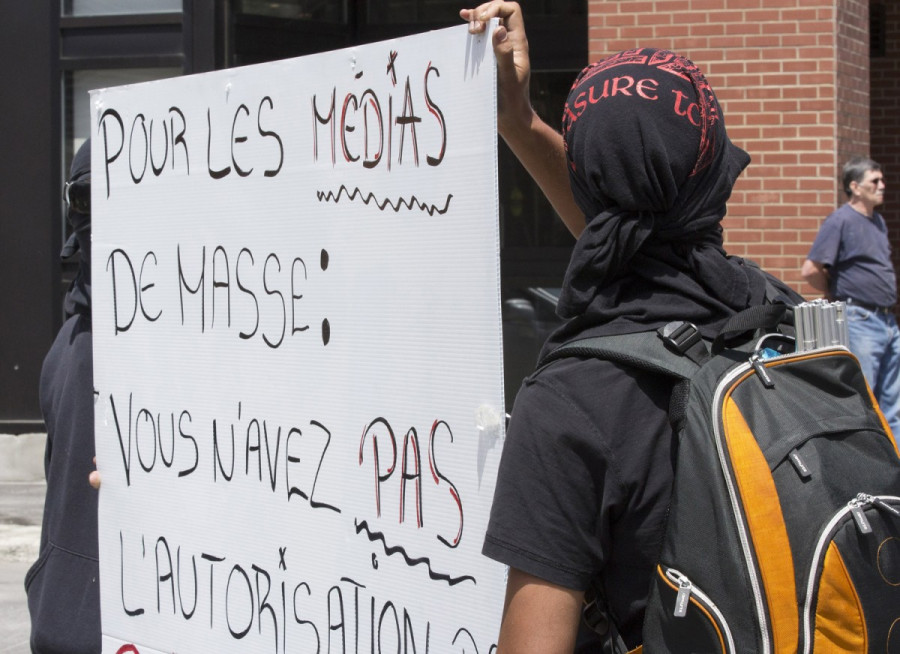 POUR LES MÉDIAS
DE MASSE:
VOUS N'AVEZ PAS
L'AUTORISATION
ASURE TO